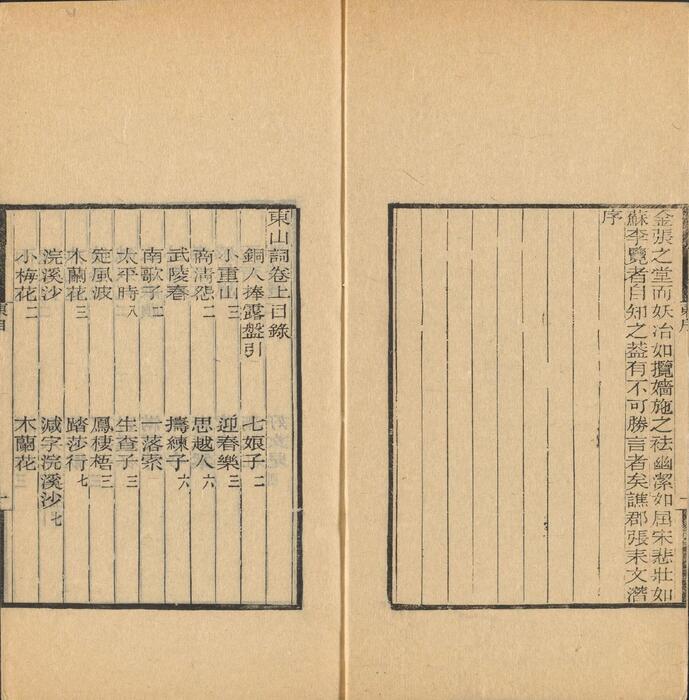 金張之堂而妖冶如攬嬙施之祛幽潔如屈宋悲壯如
蘇李覽者自知之葢有不可勝言者矣譙郡張耒文潛
序
東山詞卷上目錄
銅人捧露盤引 七娘子二
小重山三 迎春樂三
南清怨二 思越人六
武陵春 擣練子六
南歌子二 一落索
太平時八 生查子三
定風波 鳳棲梧三
木蘭花三 踏莎行七
浣溪沙 減字浣溪沙七
小梅花二 木蘭花